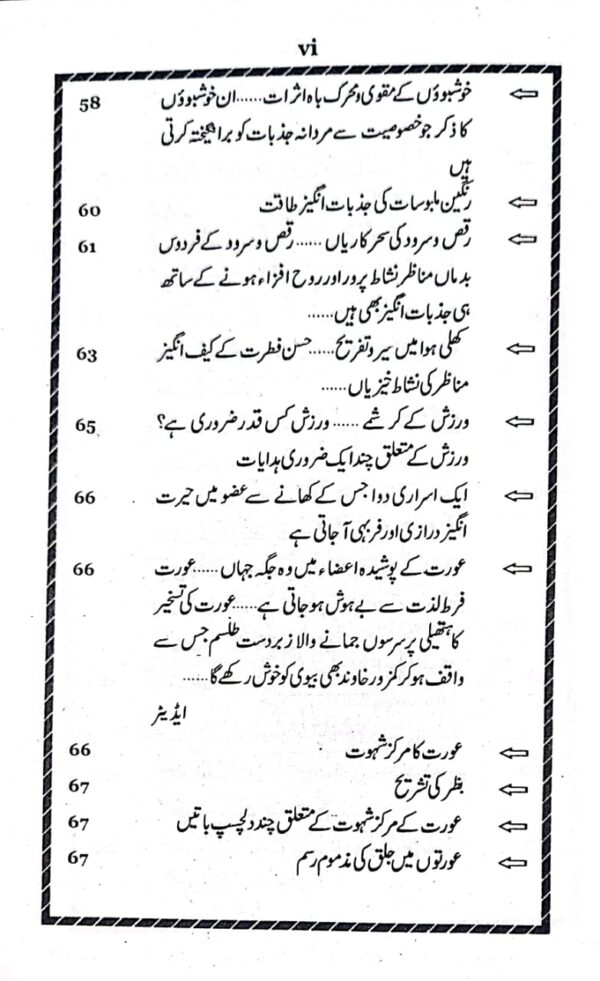 vi
⇦ خوشبوؤں کے مقوی و محرک باہ اثرات......ان خوشبوؤں 58
کا ذکر جو خصوصیت سے مردانہ جذبات کو برانگیختہ کرتی
ہیں
⇦ رنگین ملبوسات کی جذبات انگیز طاقت 60
⇦ رقص و سرود کی سحر کاریاں ...... رقص و سرود کے فردوس 61
بدماں مناظر نشاط پرور اور روح افزاء ہونے کے ساتھ
ہی جذبات انگیز بھی ہیں......
⇦ کھلی ہوا میں سیر و تفریح...... حسن فطرت کے کیف انگیز 63
مناظر کی نشاط خیزیاں ......
⇦ ورزش کے کرشمے ...... ورزش کس قدر ضروری ہے؟ 65
ورزش کے متعلق چند ایک ضروری ہدایات
⇦ ایک اسراری دوا جس کے کھانے سے عضو میں حیرت 66
انگیز درازی اور فربہی آ جاتی ہے
⇦ عورت کے پوشیدہ اعضاء میں وہ جگہ جہاں ...... عورت 66
فرط لذت سے بے ہوش ہو جاتی ہے ...... عورت کی تسخیر
کا ہتھیلی پر سرسوں جمانے والا زبردست طلسم جس سے
واقف ہو کر کمزور خاوند بھی بیوی کو خوش رکھے گا ......
ایڈیٹر
⇦ عورت کا مرکز شہوت 66
⇦ بظر کی تشریح 67
⇦ عورت کے مرکز شہوت کے متعلق چند دلچسپ باتیں 67
⇦ عورتوں میں جلق کی مذموم رسم 67